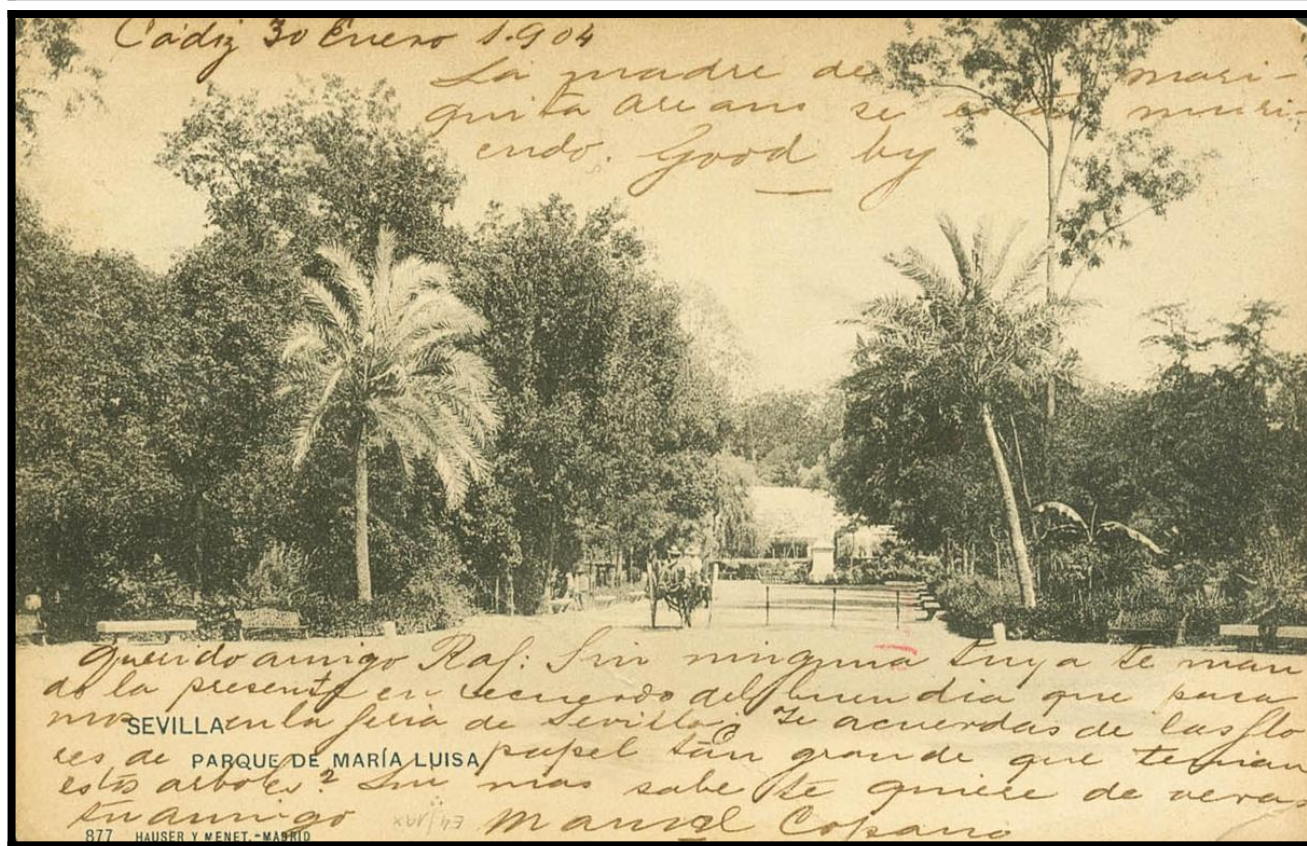 Cádiz 30 Enero 1.904
La madre de mari-
quita se está muri-
endo. Good by
Querido amigo Raf: Sin ninguna tuya te man
do la presente en recuerdo del buen dia que pasa
mos en la feria de Sevilla, Te acuerdas de las flo
res de papel tan grande que tenian
estos arboles? Sin mas sabe te quiere de veras
tu amigo Manuel Copano
SEVILLA
PARQUE DE MARÍA LUISA
877 HAUSER Y MENET.-MADRID